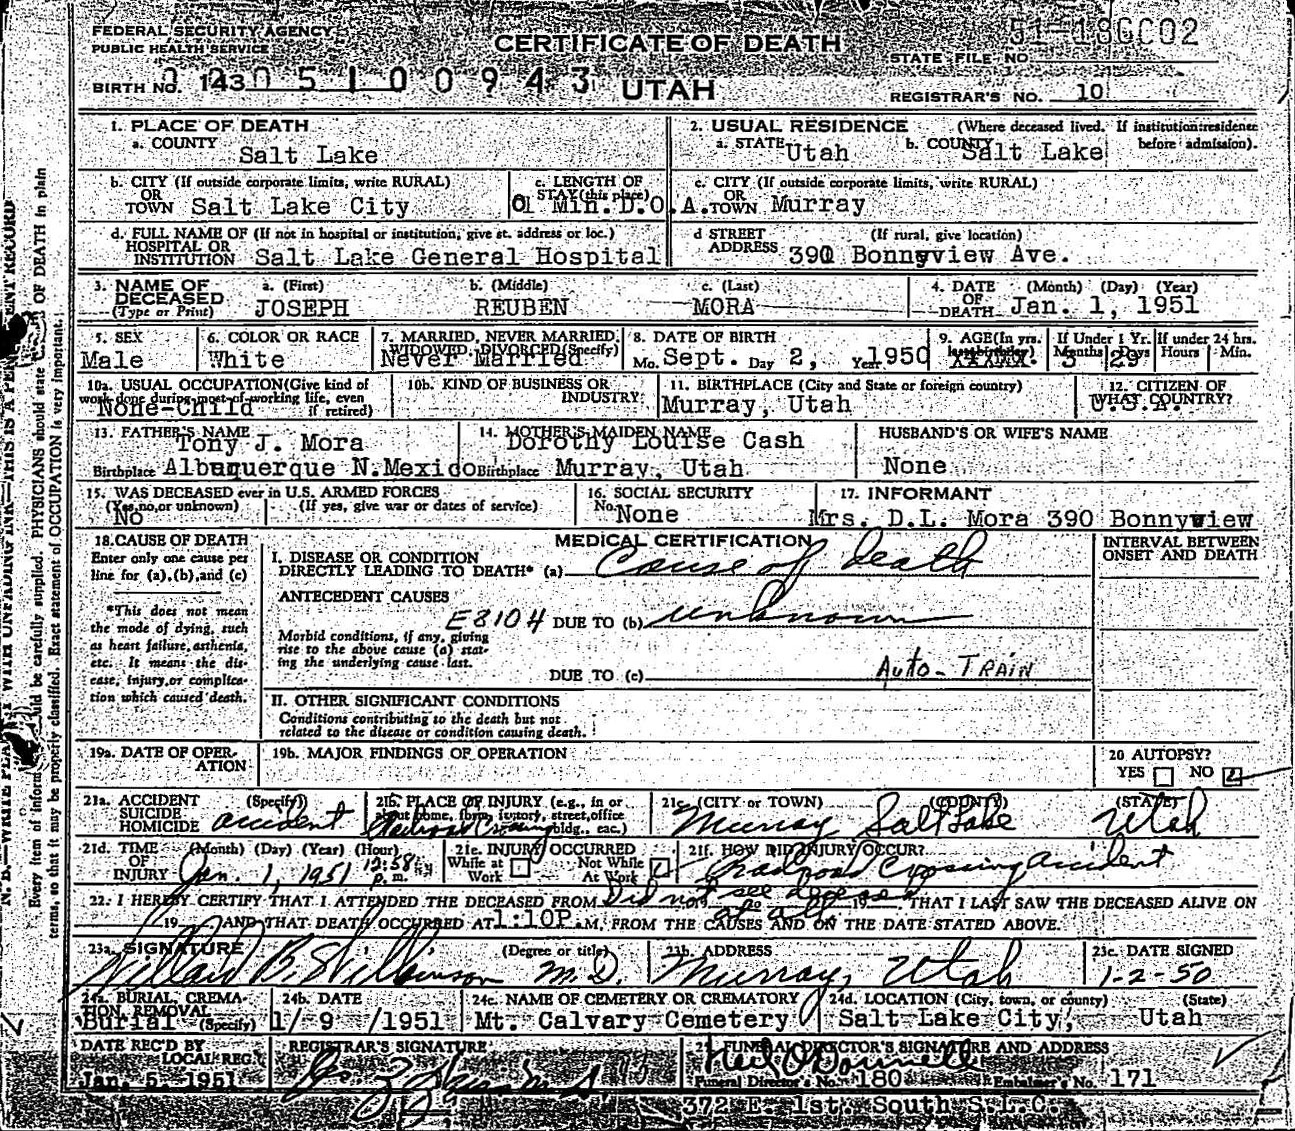 FEDERAL SECURITY AGENCY
PUBLIC HEALTH SERVICE
CERTIFICATE OF DEATH
STATE FILE NO.
BIRTH NO. 143 0 5 1 0 0 9 4 3
UTAH
REGISTRAR'S NO. 10
1. PLACE OF DEATH
a. COUNTY Salt Lake
2. USUAL RESIDENCE (Where deceased lived. If institution: residence before admission).
a. STATE Utah b. COUNTY Salt Lake
b. CITY (If outside corporate limits, write RURAL) OR TOWN Salt Lake City
c. LENGTH OF STAY (this place) Min. D.O.A.
c. CITY (If outside corporate limits, write RURAL) OR TOWN Murray
d. FULL NAME OF (If not in hospital or institution, give st. address or loc.) HOSPITAL OR INSTITUTION Salt Lake General Hospital
d STREET ADDRESS (If rural, give location) 390 Bonnyview Ave.
3. NAME OF DECEASED (Type or Print)
a. (First) JOSEPH
b. (Middle) REUBEN
c. (Last) MORA
4. DATE OF DEATH (Month) (Day) (Year) Jan. 1, 1951
5. SEX Male
6. COLOR OR RACE White
7. MARRIED, NEVER MARRIED, WIDOWED, DIVORCED (Specify) Never Married
8. DATE OF BIRTH Mo. Sept. Day 2, Year 1950
9. AGE (In yrs. last birthday)
If Under 1 Yr. Months 3 Days 29
If under 24 hrs. Hours Min.
10a. USUAL OCCUPATION (Give kind of work done during most of working life, even if retired) None-Child
10b. KIND OF BUSINESS OR INDUSTRY:
11. BIRTHPLACE (City and State or foreign country) Murray, Utah
12. CITIZEN OF WHAT COUNTRY? U.S.A.
13. FATHER'S NAME Tony J. Mora
Birthplace Albuquerque N. Mexico
14. MOTHER'S MAIDEN NAME Dorothy Louise Cash
Birthplace Murray, Utah
HUSBAND'S OR WIFE'S NAME
None
15. WAS DECEASED ever in U.S. ARMED FORCES
(Yes, no, or unknown) No
(If yes, give war or dates of service)
16. SOCIAL SECURITY No. None
17. INFORMANT
Mrs. D.L. Mora 390 Bonnyview
18. CAUSE OF DEATH
Enter only one cause per line for (a), (b), and (c)
*This does not mean the mode of dying, such as heart failure, asthenia, etc. It means the disease, injury, or complication which caused death.
MEDICAL CERTIFICATION
INTERVAL BETWEEN ONSET AND DEATH
I. DISEASE OR CONDITION
DIRECTLY LEADING TO DEATH* (a) Cause of death
ANTECEDENT CAUSES
E8104 DUE TO (b) unknown
Morbid conditions, if any, giving rise to the above cause (a) stating the underlying cause last.
DUE TO (c) Auto-Train
II. OTHER SIGNIFICANT CONDITIONS
Conditions contributing to the death but not related to the disease or condition causing death.
19a. DATE OF OPERATION
19b. MAJOR FINDINGS OF OPERATION
20 AUTOPSY?
YES NO
21a. ACCIDENT SUICIDE HOMICIDE (Specify) accident
21b. PLACE OF INJURY (e.g., in or about home, farm, factory, street, office bldg., etc.) Railroad Crossing
21c. (CITY or TOWN) (COUNTY) (STATE)
Murray Salt Lake Utah
21d. TIME OF INJURY (Month) (Day) (Year) (Hour) Jan. 1, 1951 12:58 p.m.
21e. INJURY OCCURRED
While at Work Not While At Work
21f. HOW DID INJURY OCCUR?
Railroad Crossing accident
22. I HEREBY CERTIFY THAT I ATTENDED THE DECEASED FROM Did not see deceased at all 19 THAT I LAST SAW THE DECEASED ALIVE ON
19 AND THAT DEATH OCCURRED AT 1:10P.M, FROM THE CAUSES AND ON THE DATE STATED ABOVE.
23a. SIGNATURE (Degree or title)
Willard B. Wilkinson M.D.
23b. ADDRESS
Murray, Utah
23c. DATE SIGNED
1-2-50
24a. BURIAL, CREMATION, REMOVAL (Specify) Burial
24b. DATE 1/9/1951
24c. NAME OF CEMETERY OR CREMATORY
Mt. Calvary Cemetery
24d. LOCATION (City, town, or county) (State)
Salt Lake City, Utah
DATE REC'D BY LOCAL REG.
Jan. 5, 1951
REGISTRAR'S SIGNATURE
25 FUNERAL DIRECTOR'S SIGNATURE AND ADDRESS
Neil O'Donnell
Funeral Director's No. 180 Embalmer's No. 171
372 E. 1st. South S.L.C.
N. B.—WRITE PLAINLY WITH UNFADING INK—THIS IS A PERMANENT RECORD
Every item of information should be carefully supplied. PHYSICIANS should state CAUSE OF DEATH in plain
terms, so that it may be properly classified. Exact statement of OCCUPATION is very important.